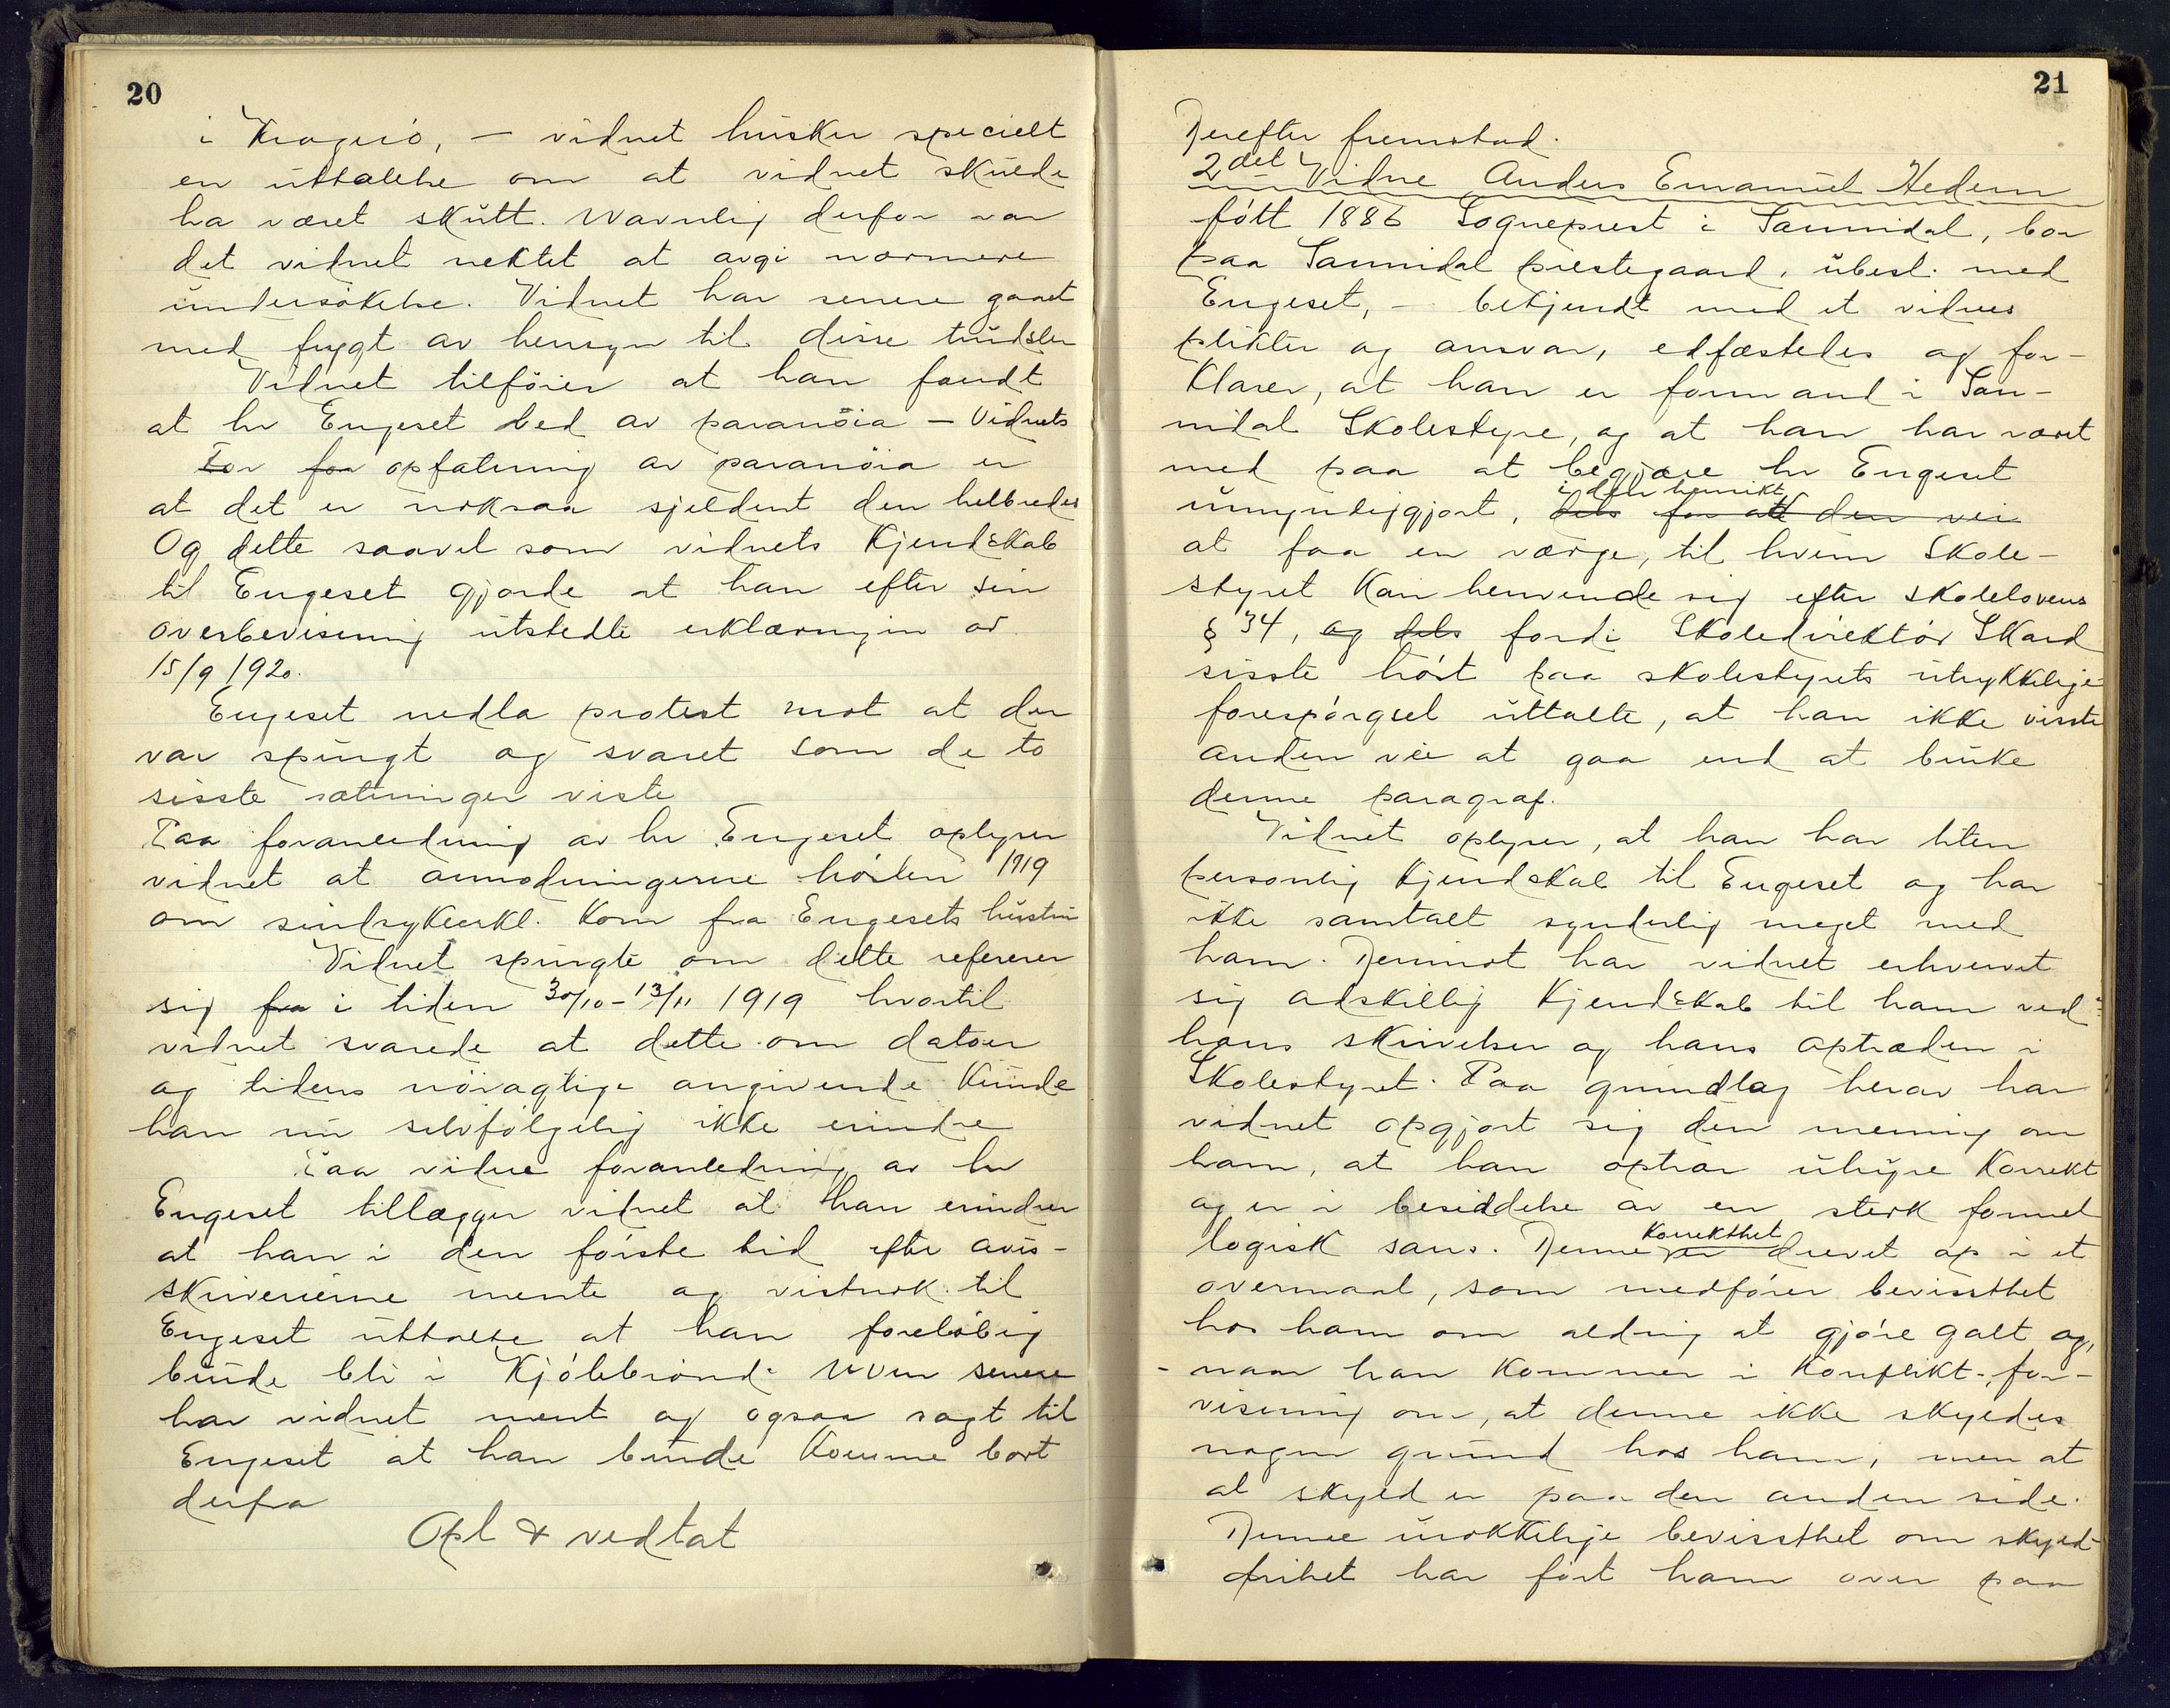 20
i Kragerö, – vidnet husker specielt
en uttalelse om at vidnet skulde
ha været skutt. Navnlig derfor var
det vidnet nektet at avgi nærmere
undersökelse. Vidnet har senere gaaet
med frygt av hensyn til disse trudsler
Vidnet tilföier at han fandt
at hr Engeset led av paranöia – Vidnets
for opfatning av paranöia er
at det er noksaa sjeldent den helbredes
Og dette saavel som vidnets Kjendskab
til Engeset gjorde at han efter sin
overbevisning utstedte erklæringen av
15/9 1920.
Engeset nedla protest mot at der
var spurgt og svaret som de to
sisste sætninger viste
Paa foranledning av hr Engeset oplyser
vidnet at anmodningerne hösten 1919
om sindsykeerkl. kom fra Engesets hustru
Vidnet spurgte om dette refererer
sig fra i tiden 30/10–13/11 1919 hvortil
vidnet svarede at dette om datoer
og tidens nöiagtige angivende kunde
han nu selvfölgelig ikke erindre
Paa vidre foranledning av hr
Engeset tillægger vidnet at han erindrer
at han i den förste tid efter avis-
skriverierne mente og vistnok til
Engeset uttalte at han forelöbig
burde bli i Kjölebrönd. Men senere
har vidnet ment og ogsaa sagt til
Engeset at han burde komme bort
derfra
Opl & vedtat
21
Derefter fremstod.
2det Vidne Anders Emanuel Hedem
fött 1886 Sogneprest i Sannidal, bor
paa Sannidal prestegaard, ubesl. med
Engeset, – bekjendt med et vidnes
plikter og ansvar, edfæstedes og for-
klarer, at han er formand i San-
nidal Skolestyre, og at han har været
med paa at begjære hr Engeset
i den hensikt
umyndiggjort, dels for at den vei
at faa en værge, til hvem Skole-
styret kan henvende sig efter skolelovens
§ 34, og dels fordi Skoledirektör Skard
sisste höst paa skolestyrets utrykkelige
forespörgsel uttalte, at han ikke visste
anden vei at gaa end at bruke
denne paragraf.
Vidnet oplyser, at han har liten
personlig kjendskab til Engeset og har
ikke samtalt synderlig meget med
ham. Derimot har vidnet erhvervet
sig adskillig kjendskab til ham ved
hans skrivelser og hans optræden i
Skolestyret. Paa grundlag herav har
vidnet opgjort sig den mening om
ham, at han optrær uhyre korrekt
og er i besiddelse av en sterk formel
Korrekthet
logisk sans. Denne er drevet op i et
overmaal, som medförer bevissthet
hos ham om aldrig at gjöre galt og,
- naar han kommer i konflikt -, for-
visning om, at denne ikke skyldes
nogen grund hos ham, men at
al skyld er paa den anden side.
Denne urokkelige bevissthet om skyld-
frihet har fört ham over paa